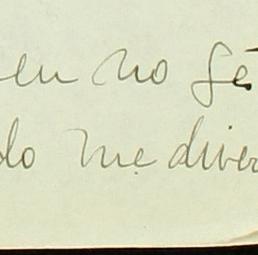 en no gé
do me diver